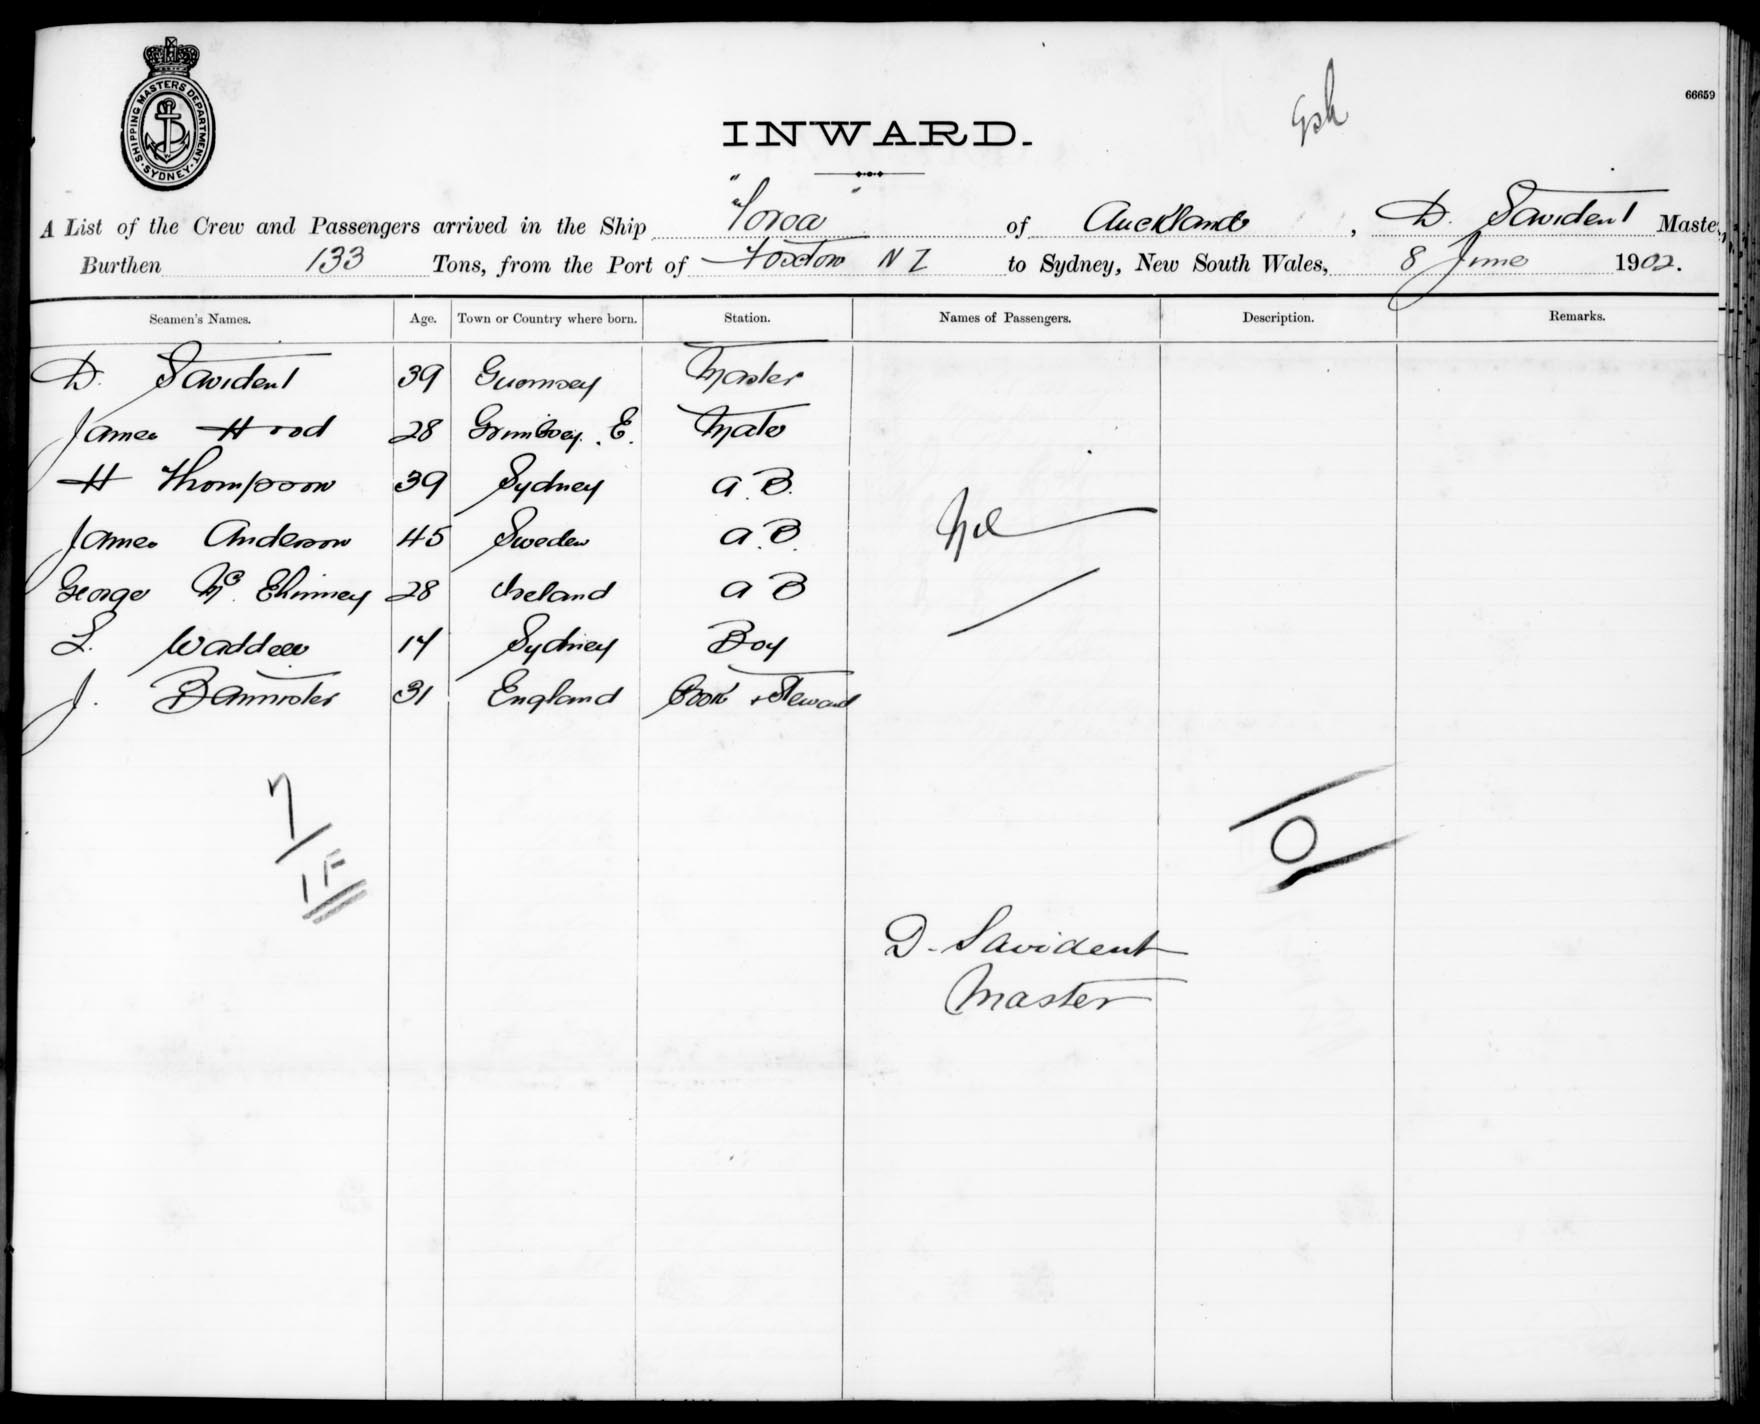 SHIPPING MASTERS DEPARTMENT
SYDNEY
66659
INWARD.
A List of the Crew and Passengers arrived in the Ship "Toroa" of Auckland, D. Savident Master,
Burthen 133 Tons, from the Port of Foxton NZ to Sydney, New South Wales, 8 June 1902.
Seamen's Names. Age. Town or Country where born. Station. Names of Passengers. Description. Remarks.
D. Savident 39 Guernsey Master
James Hood 28 Grimsby. E. Mate
H Thompson 39 Sydney A.B.
James Anderson 45 Sweden A.B.
Nil
George Mc Elhinney 28 Ireland A B
L. Waddell 14 Sydney Boy
J. Bannister 31 England Cook & Steward
7
1F
0
D. Savident
Master